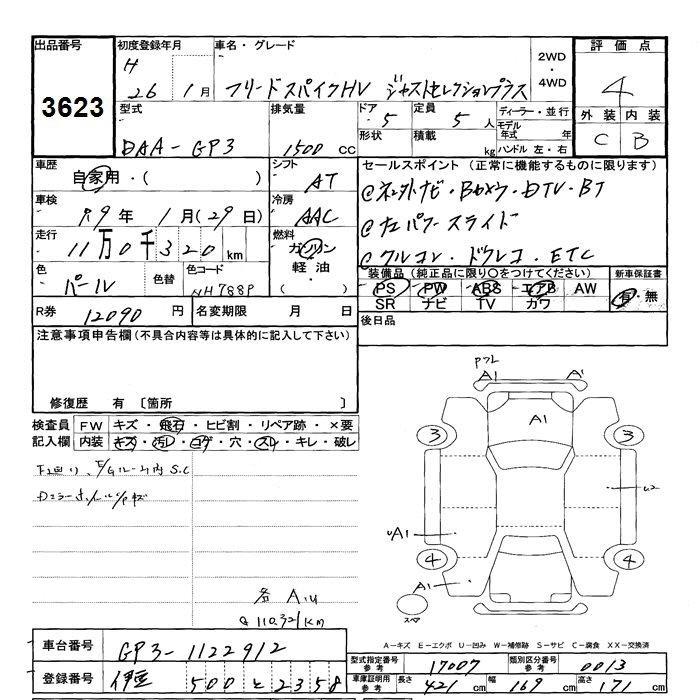 出品番号
3623
初度登録年月
H 26年 1月
車名・グレード
フリードスパイクHV ジャストセレクションプラス
2WD
・
4WD
評価点
4
外装 内装
C B
型式
DAA-GP3
排気量
1500 cc
ドア
5
形状
定員
5人
積載
kg
ディーラー・並行
モデル年式 年
ハンドル 左・右
車歴
自家用・( )
シフト
AT
車検
R9年 1月(29日)
冷房
AAC
走行
11万0千320km
燃料
ガソリン
軽油・
( )
色
パール
色替
色コード
NH788P
R券 12090円
名変期限 月 日
セールスポイント (正常に機能するものに限ります)
@ネ外ナビ・Bカメラ・DTV・BT
@左パワースライド
@クルコン・ドラレコ・ETC
装備品(純正品に限り○をつけてください)
PS PW ABS エアB AW
SR ナビ TV カワ
新車保証書
有・無
後日品
注意事項申告欄(不具合内容等は具体的に記入して下さい)
修復歴 有 〔箇所 〕
検査員記入欄
FW キズ・飛石・ヒビ割・リペア跡・×要
内装 キズ・汚レ・コゲ・穴・スレ・キレ・破レ
各 A.U
Q 110.321KM
A1 A'
A1
3 3
A1
4 4
A1
スペア
A-キズ E-エクボ U-凹み W-補修跡 S-サビ C-腐食 XX-交換済
車台番号 GP3-1122912
登録番号 伊豆 500 と 2358
型式指定番号参考 17007
類別区分番号参考 0013
車庫証明用参考 長さ 421cm 幅 169cm 高さ 171cm